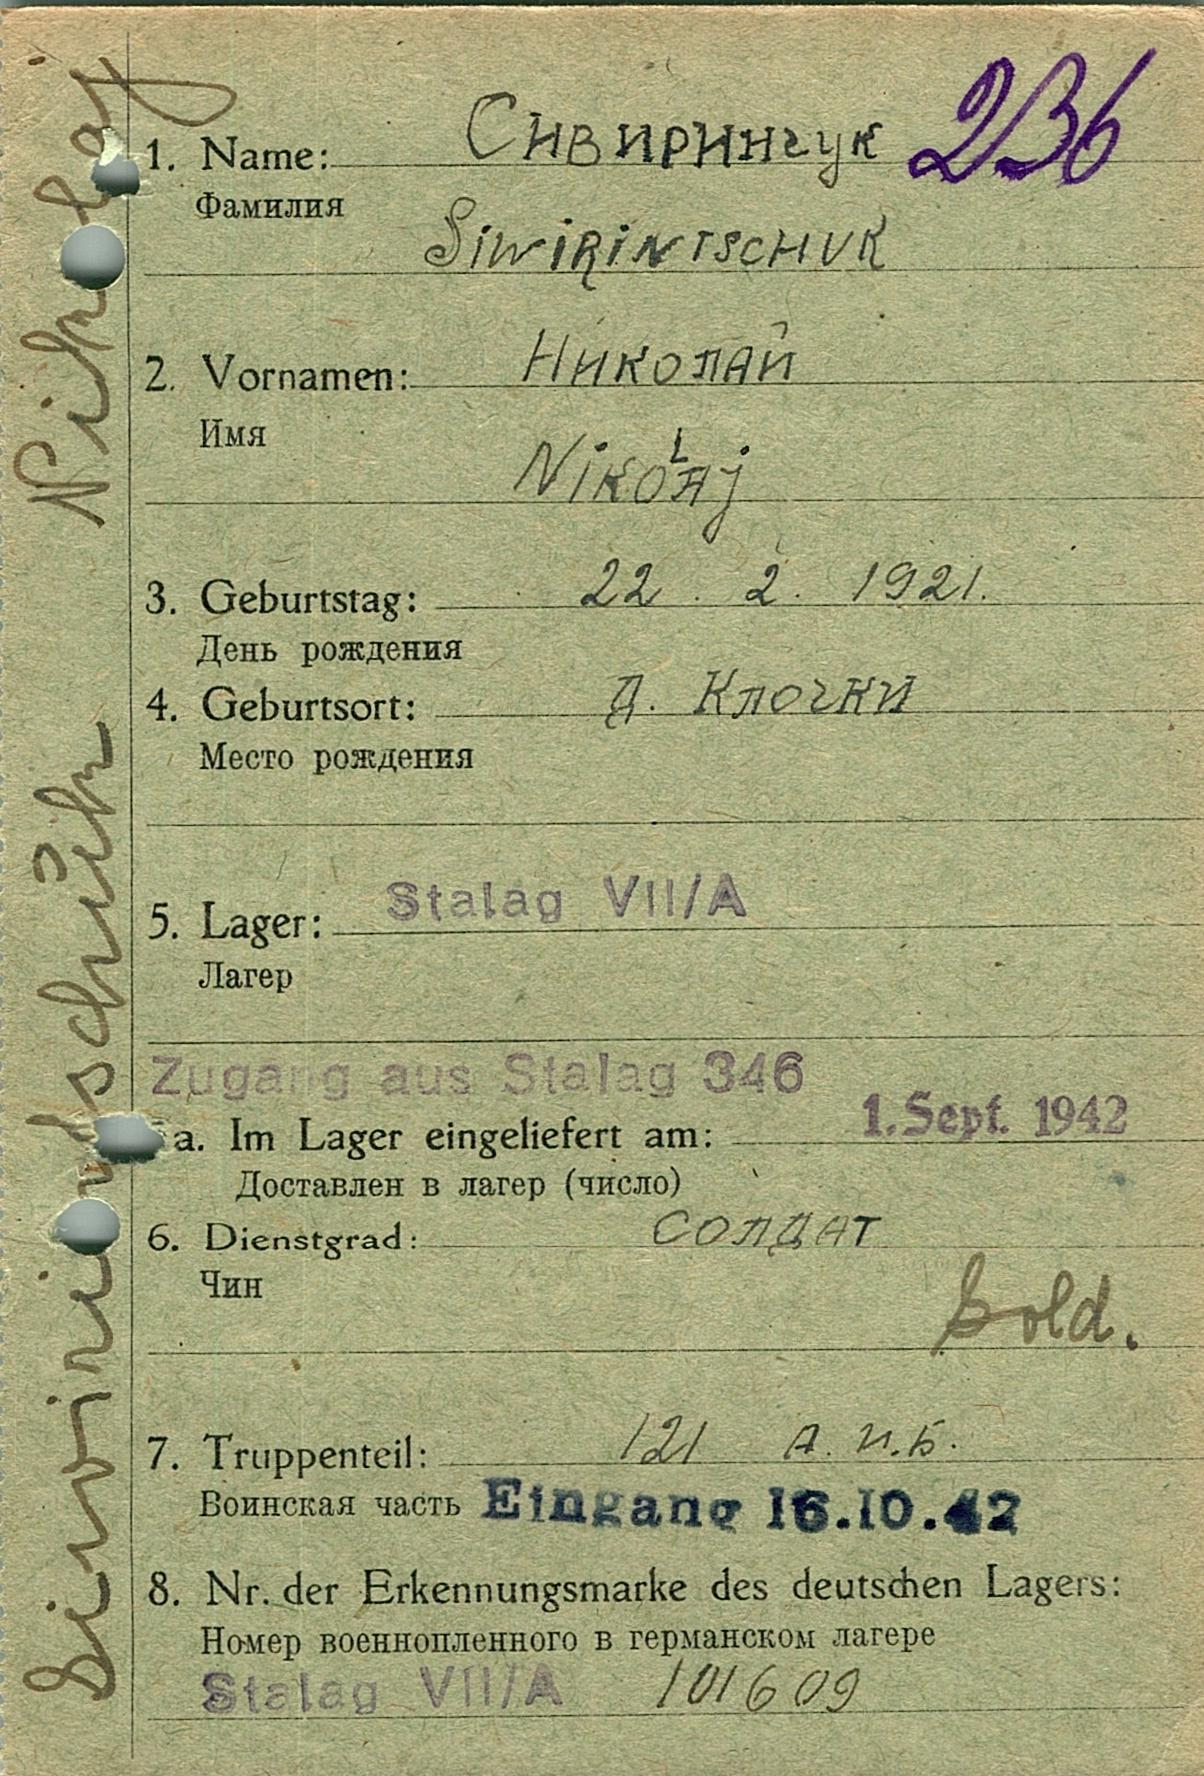 236
1. Name: Сивиринчук
Фамилия
Siwirintschuk
2. Vornamen: Николай
Имя
Nikolaj
3. Geburtstag: 22. 2. 1921.
День рождения
4. Geburtsort: Д. Клочки
Место рождения
5. Lager: Stalag VII/A
Лагер
Zugang aus Stalag 346
a. Im Lager eingeliefert am: 1. Sept. 1942
Доставлен в лагер (число)
6. Dienstgrad: солдат
Чин
Sold.
7. Truppenteil: 121 А.И.Б.
Воинская часть Eingang 16.10.42
8. Nr. der Erkennungsmarke des deutschen Lagers:
Номер военнопленного в германском лагере
Stalag VII/A 101609
Nikolaj